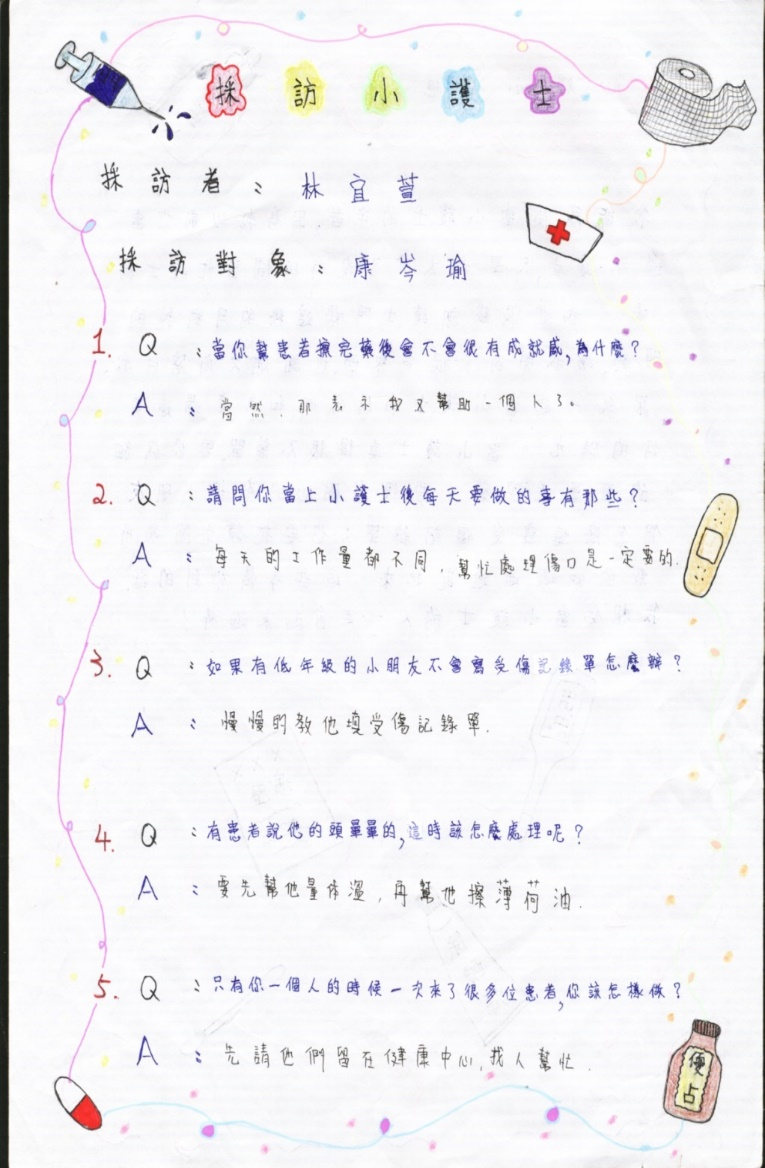 採訪小護士
採訪者：林宜萱
採訪對象：康岑瑜
1. Q：當你幫患者擦完藥後會不會很有成就感，為什麼？
A：當然！那表示我又幫助一個人了。
2. Q：請問你當上小護士後每天要做的事有那些？
A：每天的工作量都不同，幫忙處理傷口是一定要的.
3. Q：如果有低年級的小朋友不會寫受傷記錄單怎麼辦？
A：慢慢的教他填受傷記錄單.
4. Q：有患者說他的頭暈暈的，這時該怎麼處理呢？
A：要先幫他量体溫，再幫他擦薄荷油.
5. Q：只有你一個人的時候一次來了很多位患者，你該怎樣做？
A：先請他們留在健康中心，找人幫忙.
優占